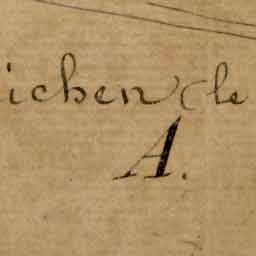 ichen (le
A.